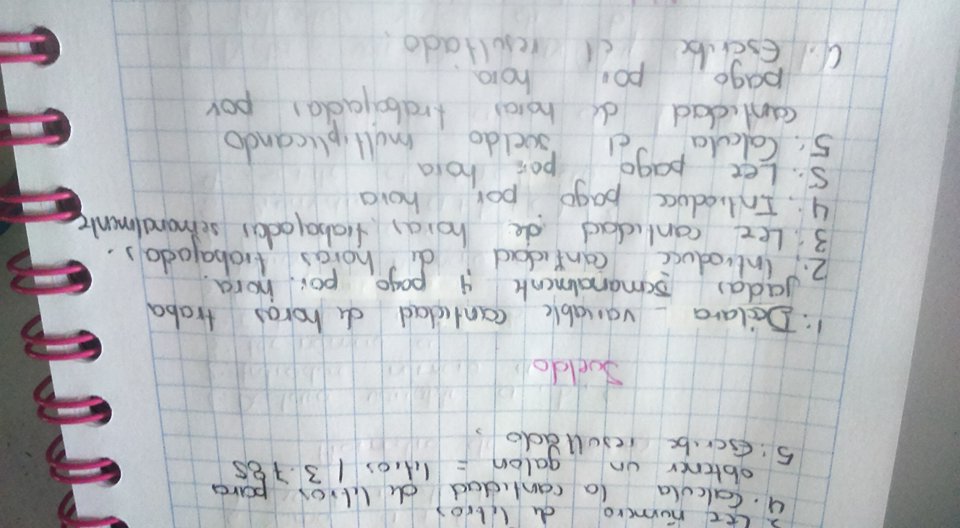 Lee número de litros
4. Calcula la cantidad de litros para
obtener un galón = litros / 3.785
5. Escribe resultado,
Sueldo
1. Declara - variable cantidad de horas traba
jadas semanalmente y pago por hora
2. introduce cantidad de horas trabajadas.
3. Lee cantidad de horas trabajadas semanalmente
4. Introduce pago por hora
5. Lee pago por hora
5. Calcula el sueldo multiplicando
cantidad de horas trabajadas por
pago por hora
Escribe el resultado,